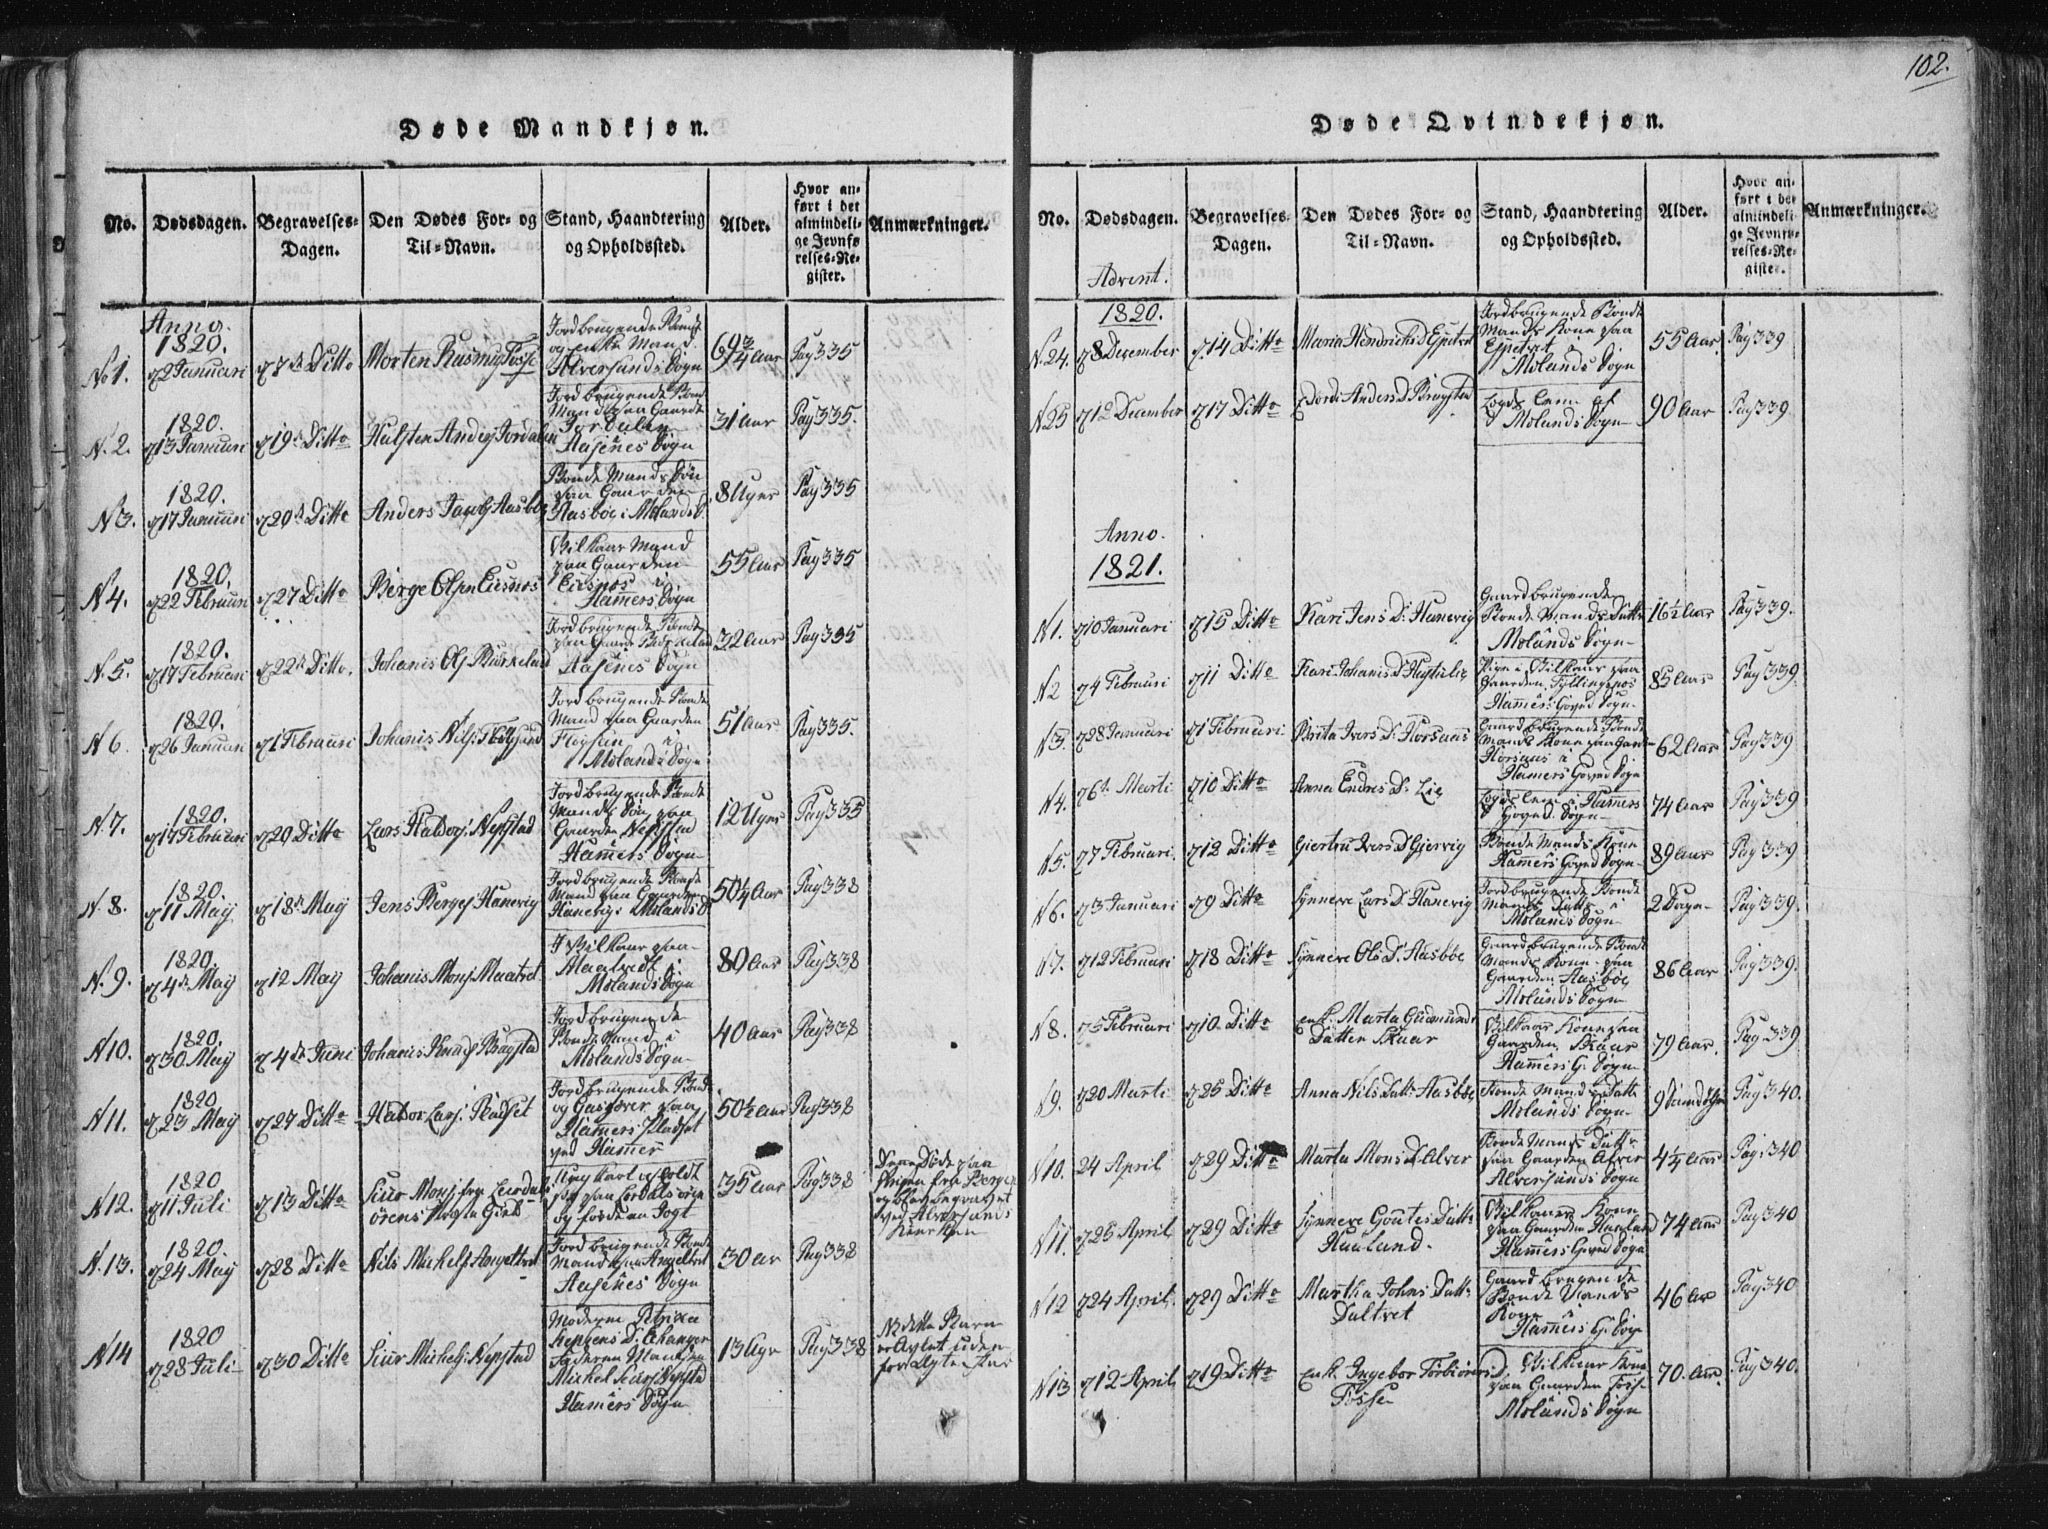 102.
Døde Mandkjøn.
No.
Dødsdagen.
Begravelses-
Dagen.
Den Dødes For- og
Til-Navn.
Stand, Haandtering
og Opholdssted.
Alder.
Hvor an-
ført i det
almindeli-
ge Jevnfø
relses-Re-
gister.
Anmærkninger.
Anno.
1820.
No 1. d 2 Januari d 7de Ditto Morten Rasmus Fosse
Jordbrugende Bonde
og Enke Mand i
Alversunds Sogn
69 3/4 Aar Pag 335
1820.
N. 2. d 13 Januari d 19de Ditto Halsten Anders Jordalen
Jordbrugende Bonde
Mand paa Gaarden
Jordalen
Aasenes Sogn
31 Aar Pag 335.
1820.
N 3. d 17 Januari d 20de Ditto Anders Jacobs Aasbøe
Bonde Mands Søn
paa Gaarden
Aasbøe i Molands S.
8 Uger Pag 335
1820.
N 4. d 22 Februari d 27 Ditto Berge Olsen Eisnos
Vilkaar Mand
paa Gaarden
Eisnos i
Hamers Sogn
55 Aar Pag 335
1820.
N. 5. d 17 Februari d 22de Ditto. Johanis Ols Birkeland
Jordbrugende Bonde
paa Gaard Birkeland
Aasenes Sogn
32 Aar Pag 335
1820.
N 6. d 26 Januari d 1 Februari Johanis Nils Fløysand
Jordbrugende Bonde
Mand paa Gaarden
i
Molands Sogn
51 Aar Pag 335.
1820.
N 7. d 17 Februari d 20 Ditto Lars Haldors Nepstad
Jordbrugende Bonde
Mands Søn paa
Gaarden Nepstad
Hamers Sogn
12 Uger Pag 335
1820.
N. 8. d 11 Maÿ d 18de Maÿ Jens Berges Hanevig
Jordbrugende Bonde
Mand paa Gaarden
Hanevig Molands S
50 1/4 Aar Pag 338
1820.
N. 9. d 4de Maÿ d 12 Maÿ Johanis Mons Maatvet
J Vilkaar paa
Maatvedt i
Molands Sogn
80 Aar Pag 338
1820.
N10. d 30 Maÿ d 4de Juni Johanis Knuds Brogstad
Jordbrugende
Bonde Mand i
Molands Sogn
40 Aar Pag 338
1820
N11. d 23 Maÿ d 27 Ditto Haldor Lars: Radset
Jordbrugende Bonde
og paa
Hamers Pladset
ved Hammer
50 1/2 Aar Pag 338
1820
N12. d 11 Juli d 13 Ditto Siur Mons fra Leerdals
ørens
Ung karl
paa Lerdalsøren
og føde en Fogt
35 Aar Pag 338
Denne Døde paa
Reisen fra Bergen
og blev begravet
ved Alversunds
Kirken
1820.
N. 13. d 24 Maÿ d 28 Ditto Nils Michels Angeltvet
Jordbrugende Bonde
Mand paa Angeltvet
Aasenes Sogn
30 ar Pag 338
1820
N14 d 28 Juli d 30 Ditto Siur Michels Nepstad
Moderen
Faderen
Michel Siurs Nepstad
Hamers Sogn
13 Uger Pag 338
NB dette Barn
er Avlet uden
for Ægteskab
Døde Qvindekjøn.
No.
Dødsdagen.
Begravelses-
Dagen.
Den Dødes For- og
Til-Navn.
Stand, Haandtering
og Opholdssted.
Alder.
Hvor an-
ført i det
almindeli-
ge Jevnfø-
relses-Re-
gister.
Anmærkninger.
Advent.
1820.
N. 24. d 8 December d 14 Ditto Maria Hindrichs D Eitvet
Jordbrugende Bonde
Mands Kone paa
i
Molands Sogn
55 Aar. Pag 339
N 25 d 12 December d 17 Ditto Anders D Brogstad
Logds Lem af
Molands Sogn
90 Aar Pag 339.
Anno.
1821.
N 1. d 10 Januari d 15 Ditto Kari Jens D: Hanevig
Gaardbrugende
Bonde Mands Datter
Molands Sogn
16 1/2 Aar Pag 339.
N 2 d 4 Februari d 11 Ditto Kari Johanis D
Vilkaar paa
Gaarden Fyllingsnes
Hamers Hoved Sogn
85 Aar Pag 339.
N 3. d 28 Januari d 1 Februari Brita Ivers D: Horsaas
Gaardbrugende Bonde
Mands Kone paa Gaarden
Horsaas i
Hamers Hoved Sogn
62 Aar Pag 339
N 4. d 6te Marti d 10 Ditto Anna Endres D: Lie
Logds Lem i Hamers
Hoved Sogn
74 Aar Pag 339
N 5. d 7 Februari d 12 Ditto Giertru Ivers D Giervig
Bonde Mands Kone
Hamers Hoved Sogn
89 Aar Pag 339
N 6. d 3 Januari d 9 Ditto Synneve Lars D: Hanevig
Jordbrugende Bonde
Mands Datter i
Molands Sogn
2 Dage Pag 339.
N 7. d 12 Februari d 18 Ditto Synneve Ols D: Aasbøe
Gaardbrugende Bonde
Mands Kone paa
Gaarden Aasbøe
Molands Sogn
86 Aar Pag 339.
N 8. d 5 Februari d 10. Ditto enk: Marta Gudmunds
Datter Skaar
Vilkaar Kone paa
Gaarden Skaar
Hamers H. Sogn
79 Aar. Pag 339
N 9. d 20 Marti d 25 Ditto Anna Nils Datt: Aasbøe
Bonde Mands Datter
Molands Sogn
9 Pag 340.
N 10. 24 April d 29 Ditto Marta Mons D: Alver
Bonde Mands Datter
paa Gaarden Alver
Alversunds Sogn
4 1/4 Aar Pag: 340
N 11. d 25 April d 29 Ditto Synneve Goutes Datt:
Haaland.
Vilkaars Kone
paa Gaarden Haaland
Hamers Hoved Sogn
74 Aar Pag 340
N 12 d 24 April d 29 Ditto Martha Johns Datt:
Daltvet
Gaardbrugende
Bonde Mands
Kone i
Hamers H: Sogn
46 Aar Pag: 340
N 13 d 12 April d 19 Ditto Enk. Ingebor Torbiørns D
Fosse
Vilkaar Kone
paa Gaarden Fosse
Molands Sogn
70. Aar. Pag 340.